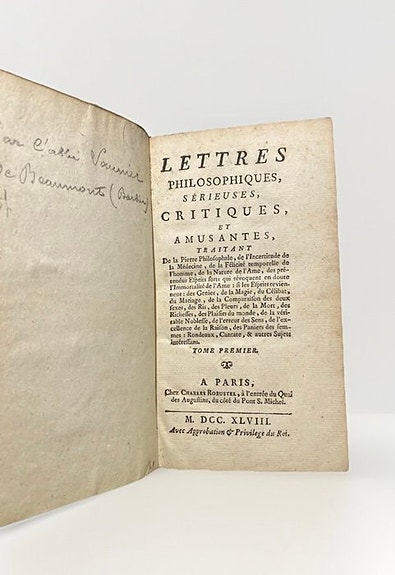 par l'abbé
de Beaumont (Barbier)
LETTRES
PHILOSOPHIQUES,
SÉRIEUSES,
CRITIQUES,
ET
AMUSANTES,
TRAITANT
De la Pierre Philosophale, de l'Incertitude de
la Médecine, de la Félicité temporelle de
l'homme, de la Nature de l'Ame, des pré-
tendus Esprits forts qui révoquent en doute
l'Immortalité de l'Ame: si les Esprits revien-
nent: des Genies, de la Magie, du Célibat,
du Mariage, de la Comparaison des deux
sexes, des Ris, des Pleurs, de la Mort, des
Richesses, des Plaisirs du monde, de la véri-
table Noblesse, de l'erreur des Sens, de l'ex-
cellence de la Raison, des Paniers des fem-
mes: Rondeaux, Cantate, & autres Sujets
intéressans.
TOME PREMIER.
A PARIS,
Chez CHARLES ROBUSTEL, à l'entrée du Quai
des Augustins, du côté du Pont S. Michel.
M. DCC. XLVIII.
Avec Approbation & Privilege du Roi.